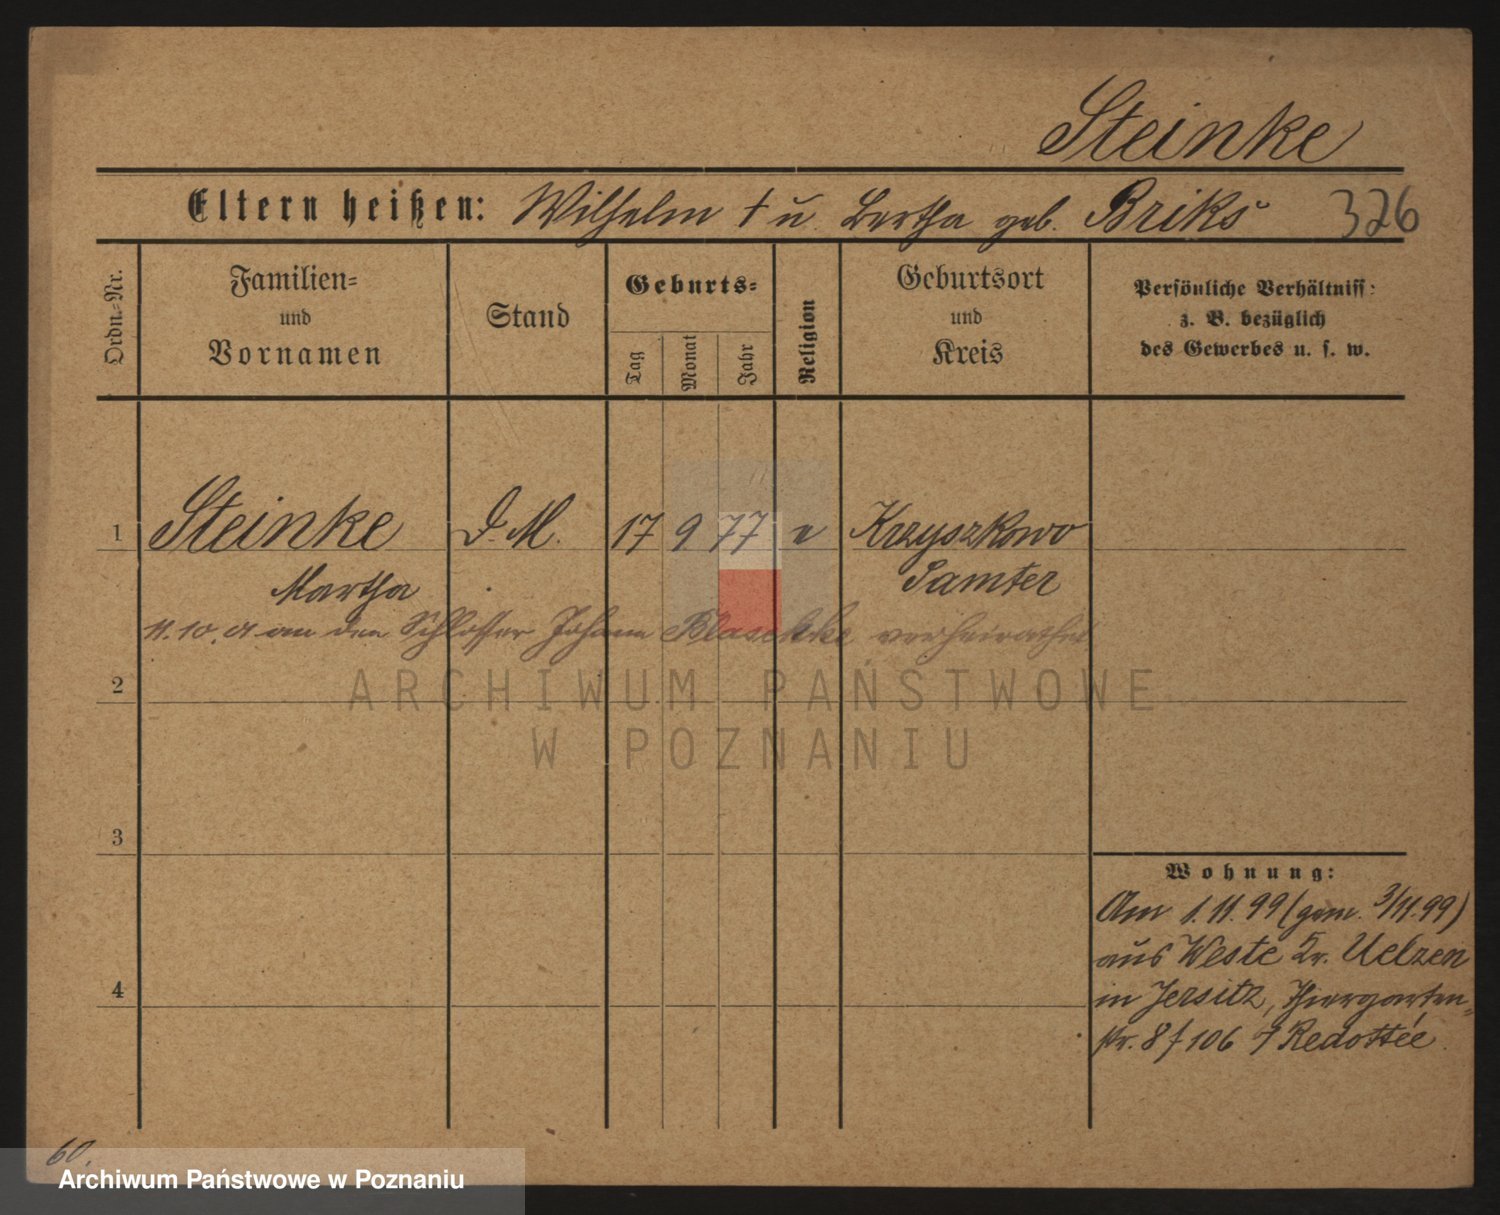 Steinke
Eltern heißen: Wilhelm † u. Bertha geb. Briks 326
Ordn.-Nr.
Familien-
und
Vornamen
Stand
Geburts-
Tag
Monat
Jahr
Religion
Geburtsort
und
Kreis
Persönliche Verhältniss:
z. B. bezüglich
des Gewerbes u. s. w.
1 Steinke D. M. 17 9 77 e Krzyszkowo
Martha Samter
11.10. an den Schlosser Johann Blaschke verheirathet
2
ARCHIWUM PAŃSTWOWE
W POZNANIU
3
4
Wohnung:
Am 1.11.99 (gem. 3/11.99)
aus Weste Kr. Uelzen
in Jersitz, Thiergarten-
str. 8 f 106 Redottée
60.
Archiwum Państwowe w Poznaniu